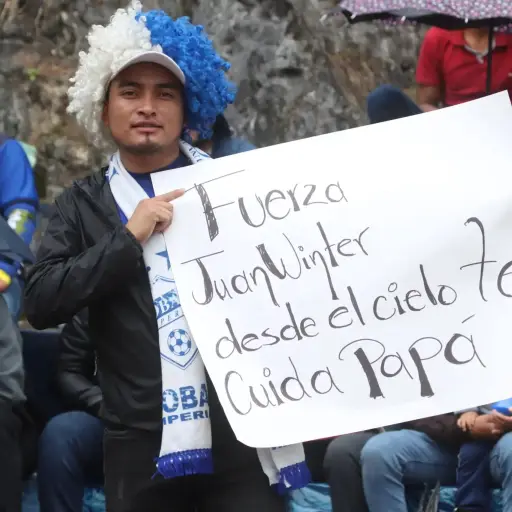 Fuerza
Juan Winter
desde el cielo Te
Cuida Papá
OBA
IMPERI